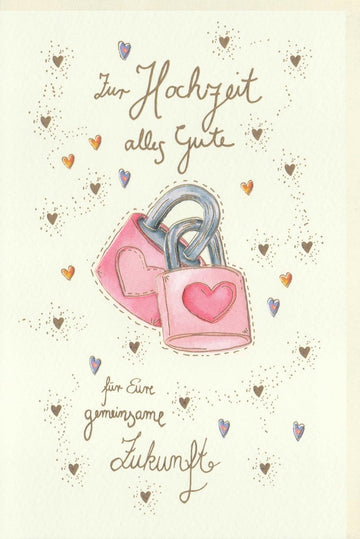 Zur Hochzeit
alles Gute
für Eure
gemeinsame
Zukunft